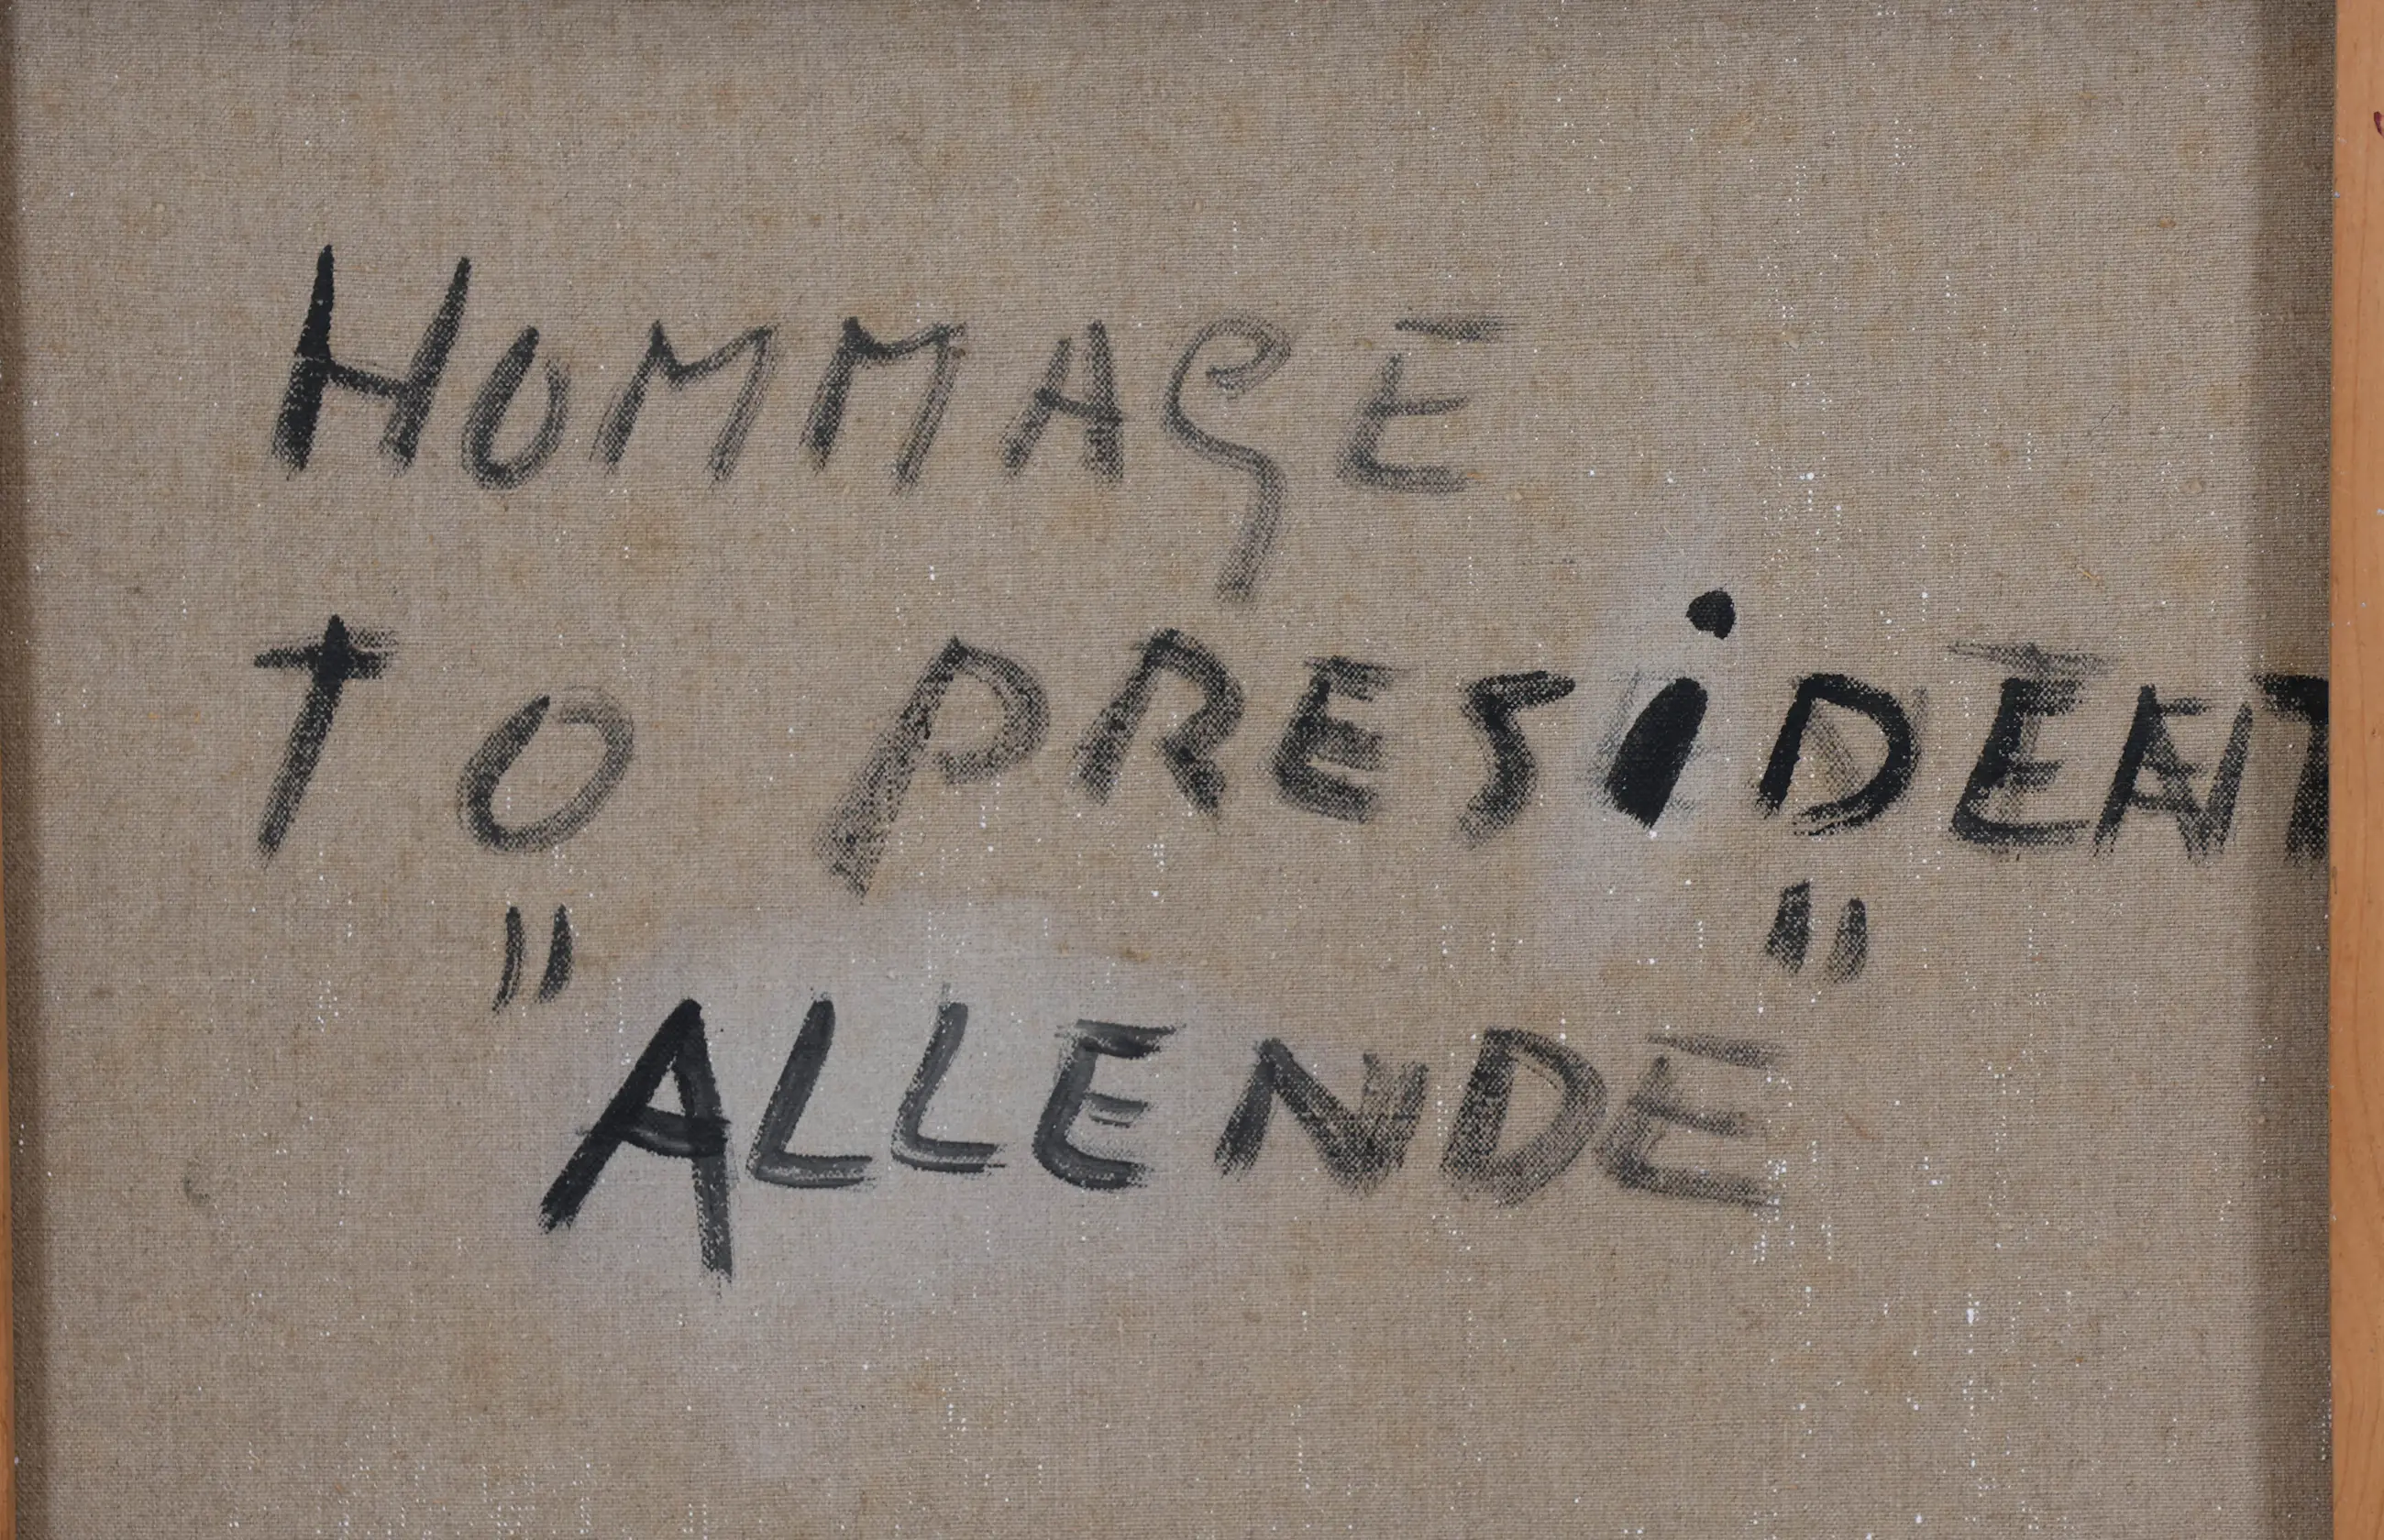 HOMMAGE
TO PRESiDENT
"ALLENDE"